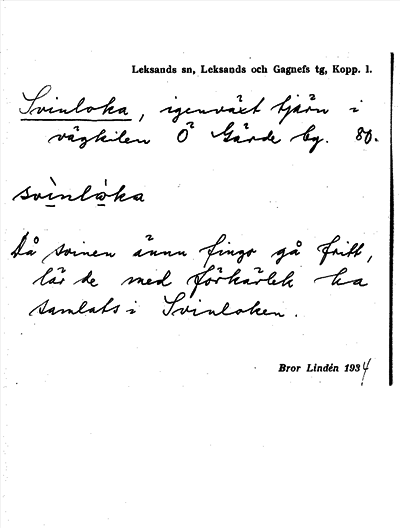 Leksands sn, Leksands och Gagnefs tg, Kopp. l.
Svinloka, igenväxt tjärn i
vägkilen Ö Gärde by. 80.
svinlòka
Då svinen ännu fingo gå fritt,
lär de med förkärlek ha
samlats i Svinloken.
Bror Lindén 1934